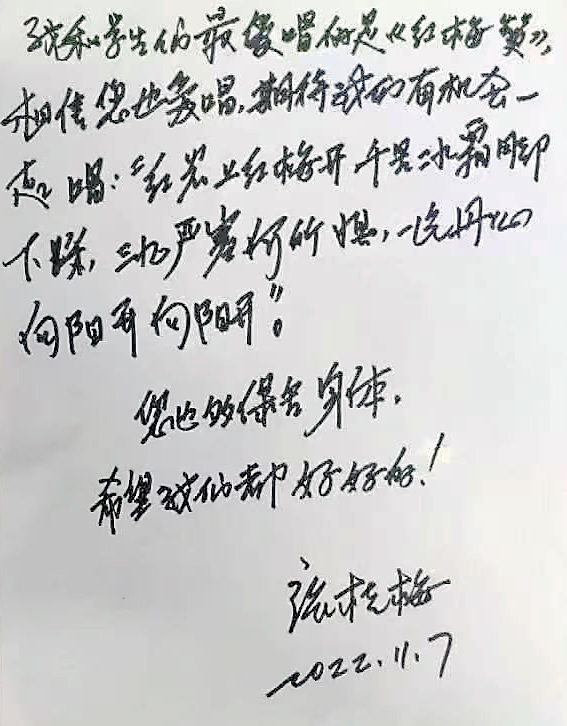 我和学生们最爱唱的是《红梅赞》,
相信您也爱唱,期待我们有机会一
起唱:“红岩上红梅开 千里冰霜脚
下踩,三九严寒何所惧,一片丹心
向阳开向阳开”。
您也多保重身体.
希望我们都好好的!
张桂梅
2022.11.7